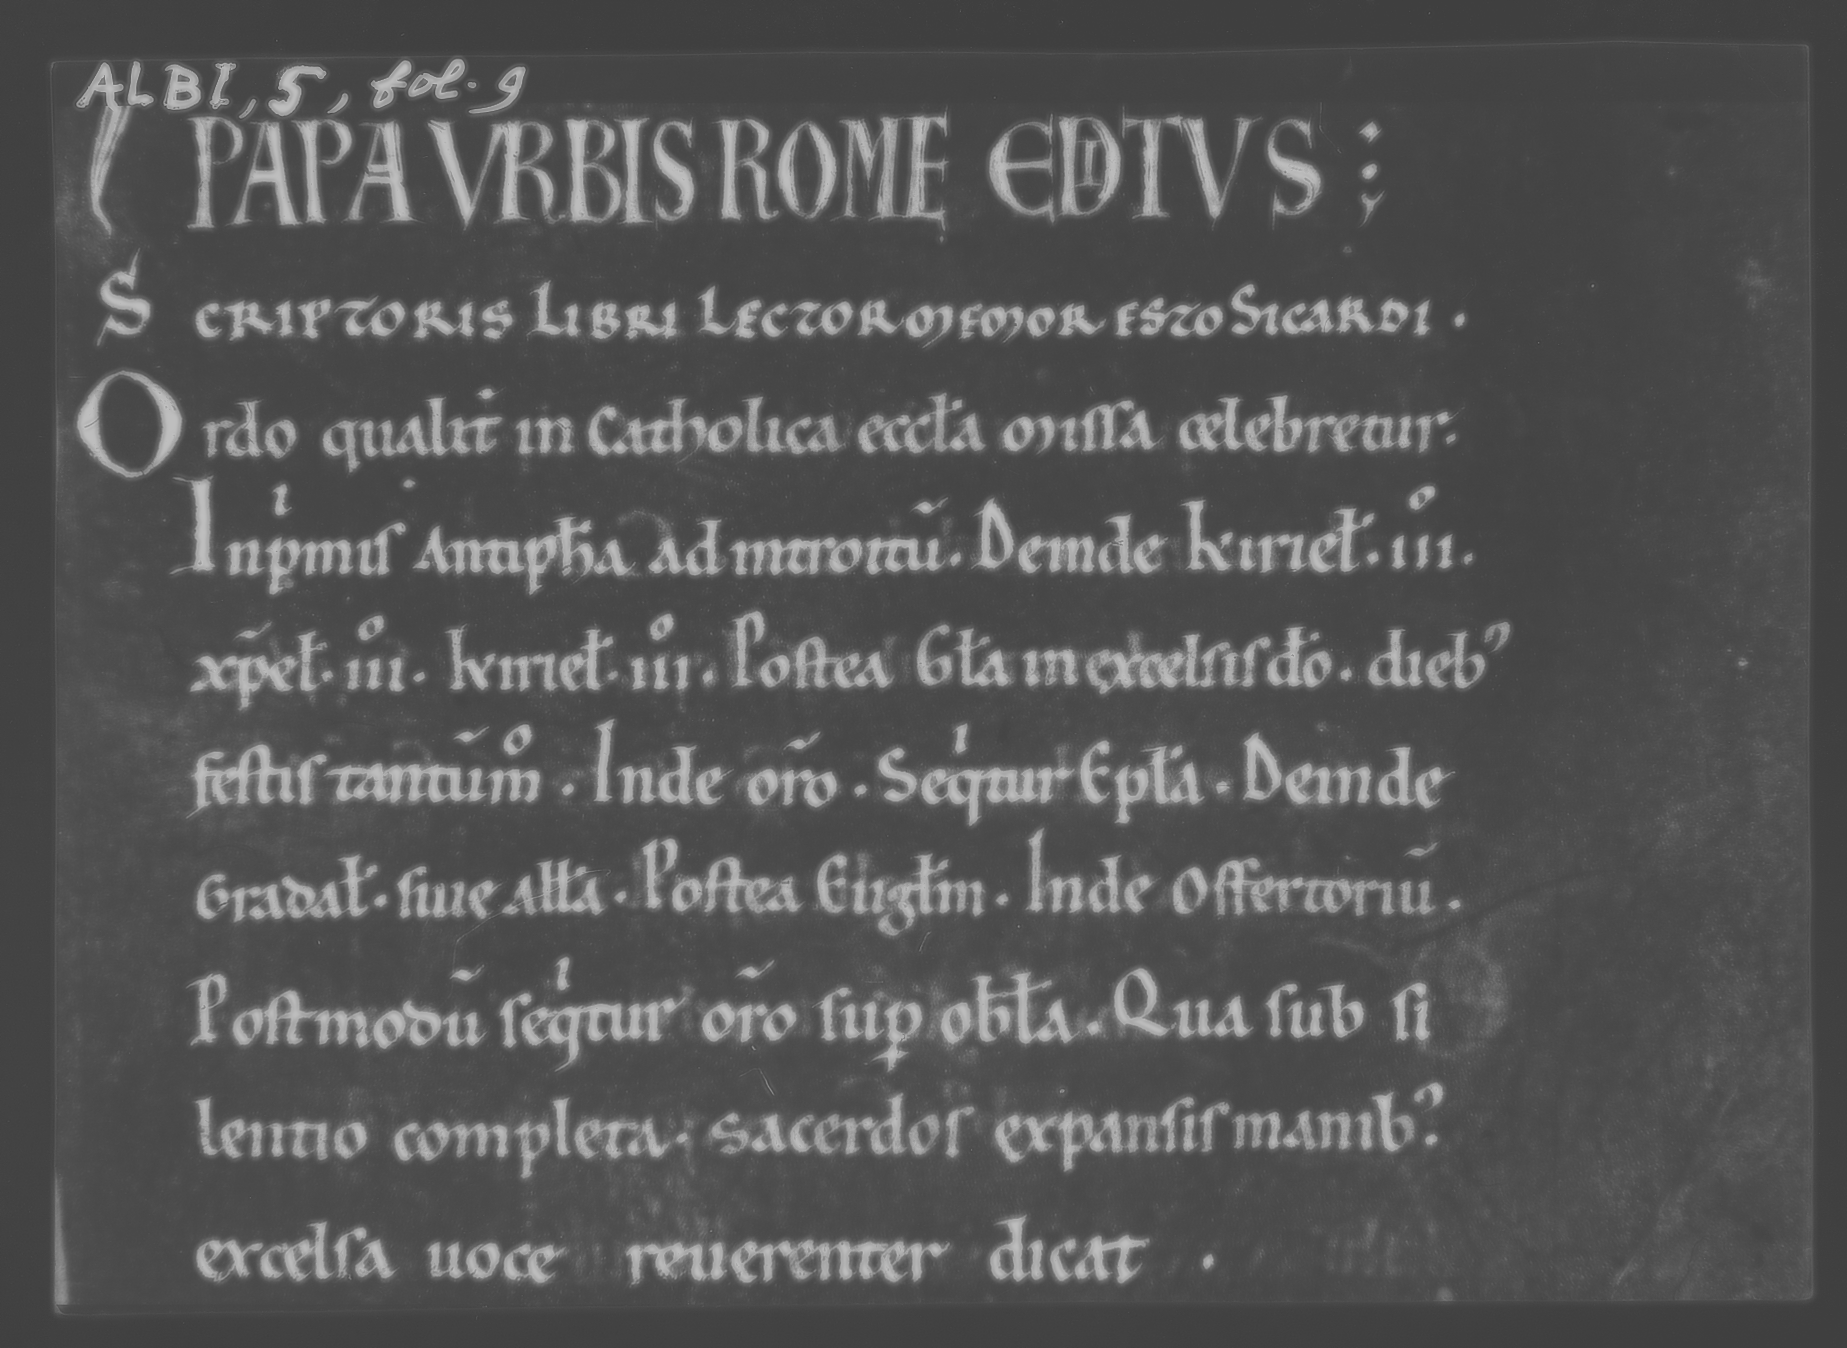 ALBI, 5, fol. 9
PAPA VRBIS ROME EDITVS
SCRIPTORIS LIBRI LECTOR MEMOR ESTO SICARDI .
Ordo qualit̄ in Catholica eccl̄a missa celebretur.
Inpͥmis Antiph̄a ad introitū. Deinde kiriel̄. iiiͦ.
xp̄el̄. iiiͦ. kiriel̄. iiiͦ. Postea Gl̄a in excelsis d̄o. dieb⁹
festis tantūmͦ. Inde or̄o. Seqͥtur Epl̄a. Deinde
Gradal̄. siue all̄a. Postea Eugl̄m. Inde Offertoriū.
Postmodū seqͥtur or̄o sup̱ obl̄a. Qua sub si
lentio completa. sacerdos expansis manib⁹.
excelsa uoce reuerenter dicat .